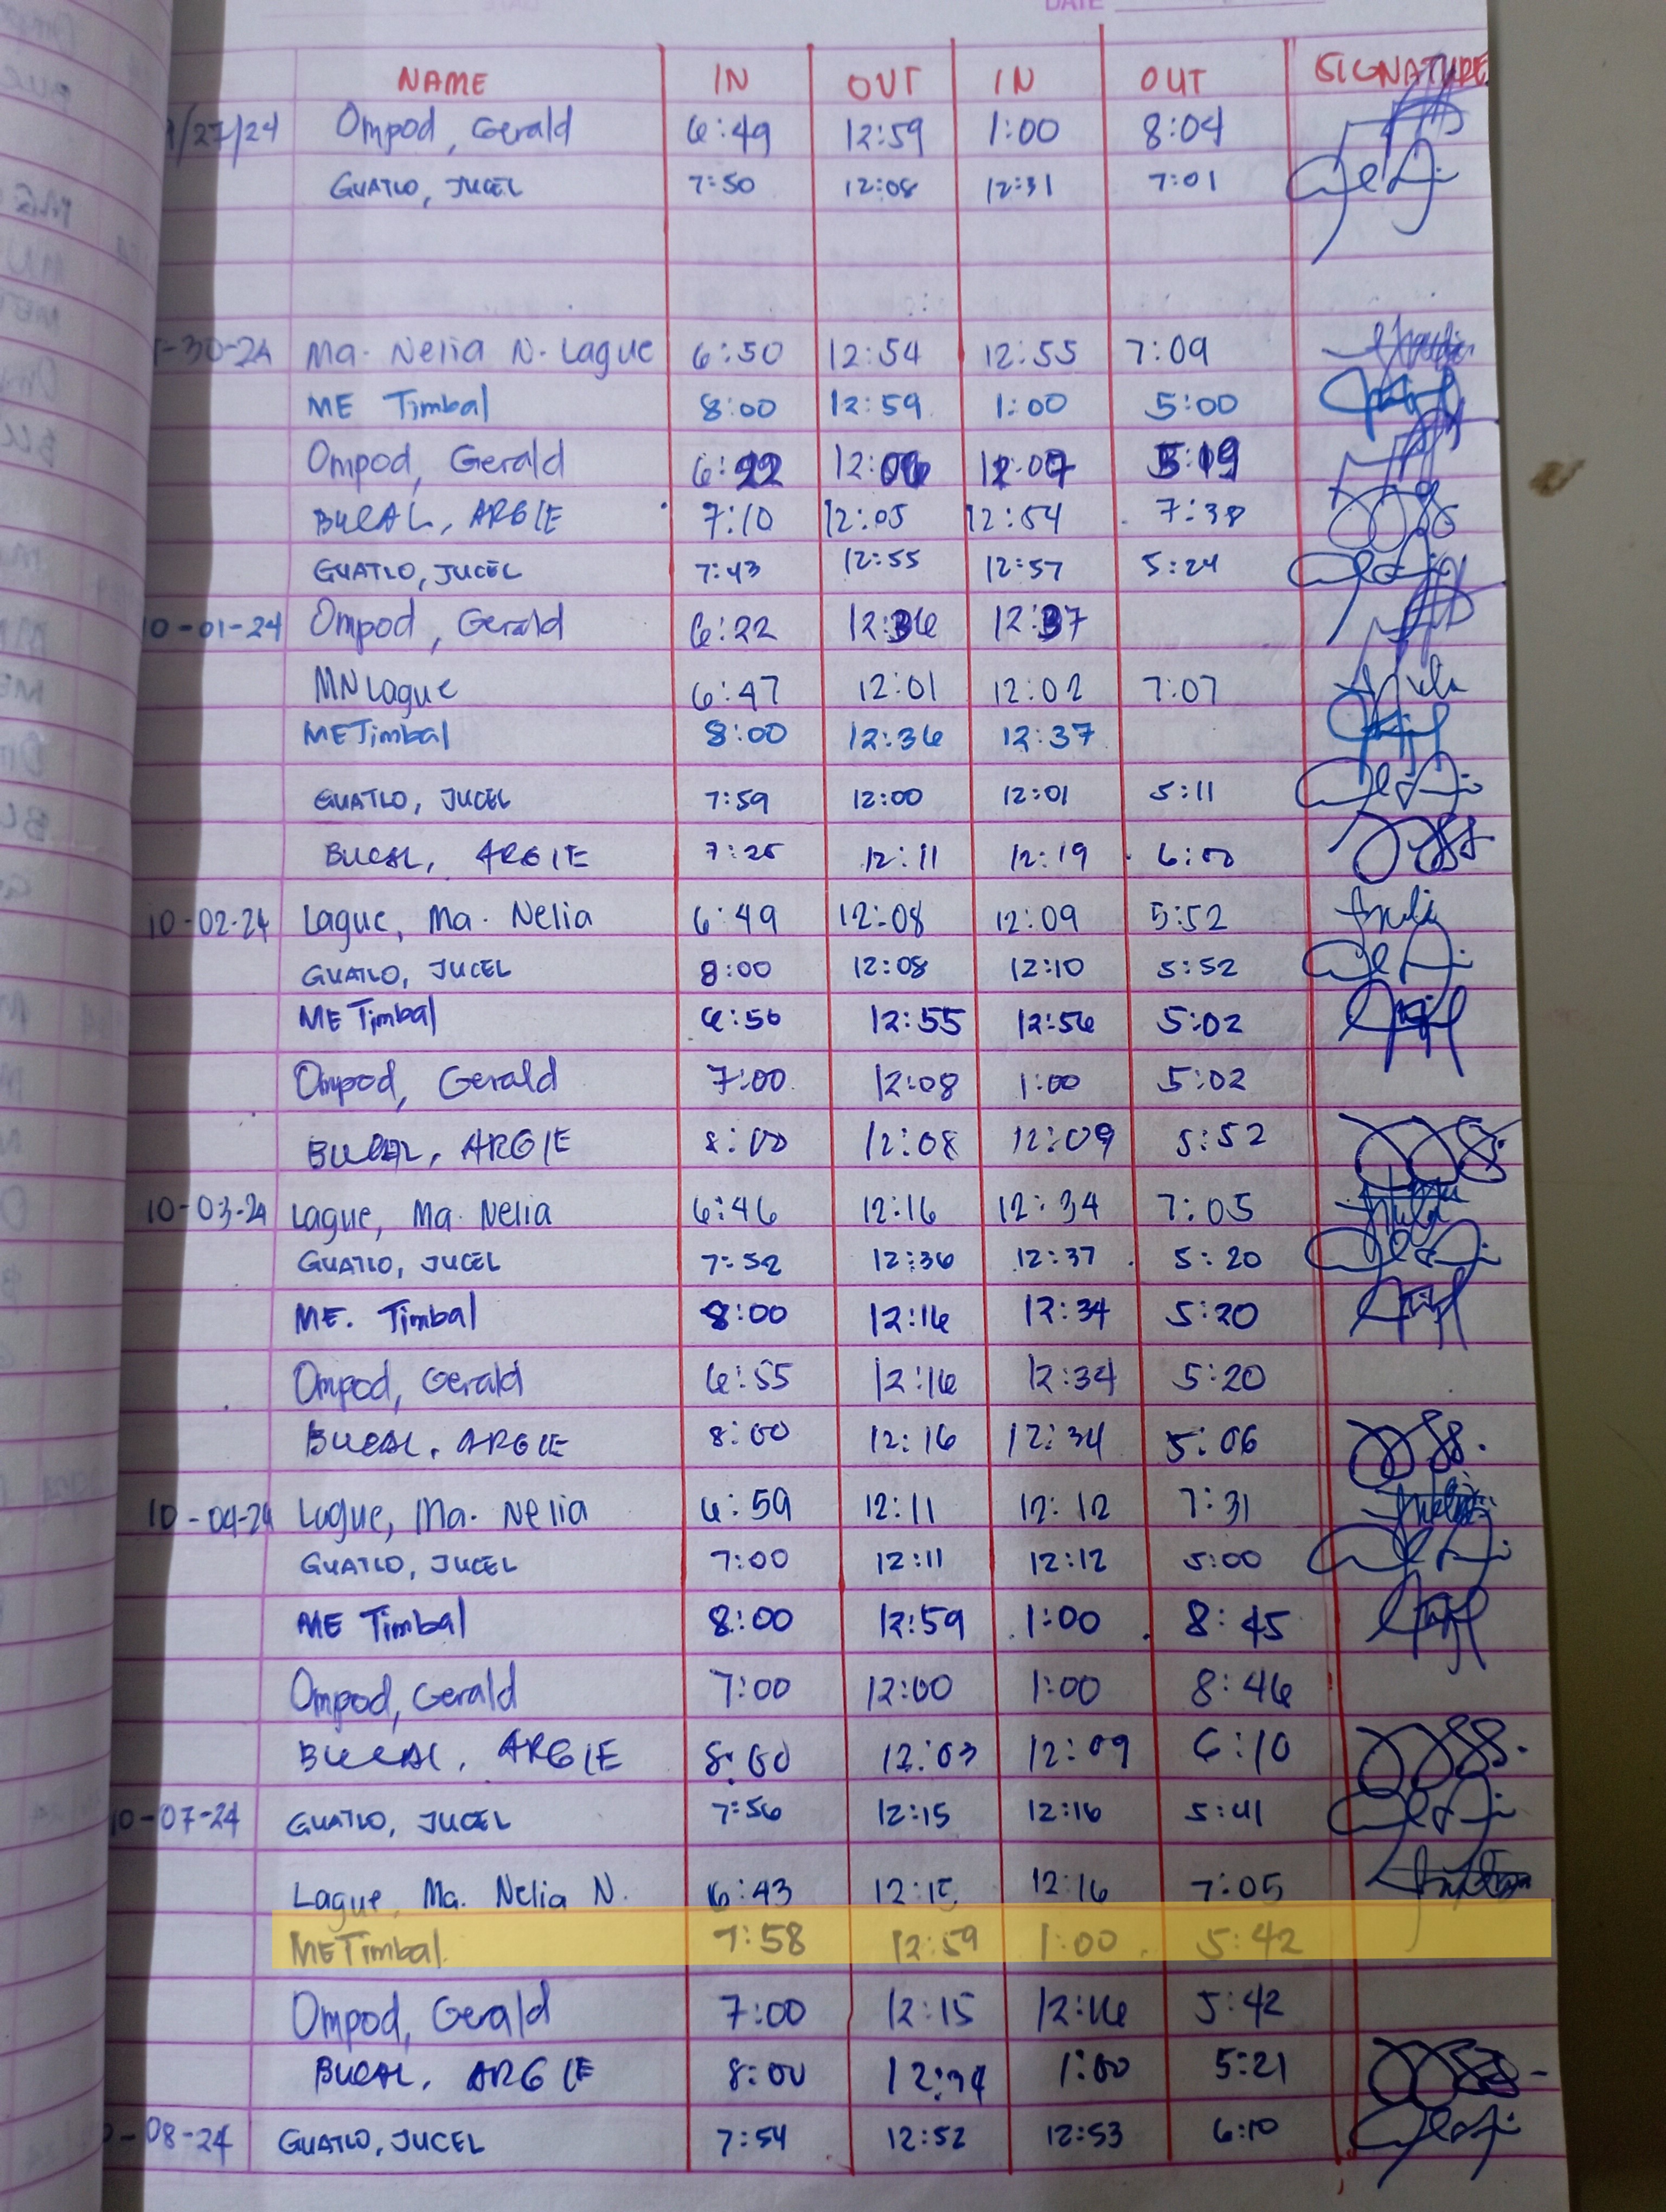 DATE
NAME IN OUT IN OUT SIGNATURE
/27/24 Ompod, Gerald 6:49 12:59 1:00 8:04
GUATLO, JUCEL 7:50 12:08 12:31 7:01
-30-24 Ma. Nelia N. Lague 6:50 12:54 12:55 7:09
ME Timbal 8:00 12:59 1:00 5:00
Ompod, Gerald 6:22 12:06 12:07 5:19
BUCAL, ARGIE 7:10 12:05 12:54 7:38
GUATLO, JUCEL 7:43 12:55 12:57 5:24
10-01-24 Ompod, Gerald 6:22 12:36 12:37
MN Lague 6:47 12:01 12:02 7:07
ME Timbal 8:00 12:36 12:37
GUATLO, JUCEL 7:59 12:00 12:01 5:11
BUCAL, ARGIE 7:25 12:11 12:19 6:00
10-02-24 Lague, Ma. Nelia 6:49 12:08 12:09 5:52
GUATLO, JUCEL 8:00 12:08 12:10 5:52
ME Timbal 6:56 12:55 12:56 5:02
Ompod, Gerald 7:00 12:08 1:00 5:02
BUCAL, ARGIE 8:00 12:08 12:09 5:52
10-03-24 Lague, Ma. Nelia 6:46 12:16 12:34 7:05
GUATLO, JUCEL 7:52 12:36 12:37 5:20
ME. Timbal 8:00 12:16 12:34 5:20
Ompod, Gerald 6:55 12:16 12:34 5:20
BUCAL, ARGIE 8:00 12:16 12:34 5:06
10-04-24 Lague, Ma. Nelia 6:59 12:11 12:12 7:31
GUATLO, JUCEL 7:00 12:11 12:12 5:00
ME Timbal 8:00 12:59 1:00 8:45
Ompod, Gerald 7:00 12:00 1:00 8:46
BUCAL, ARGIE 8:00 12:03 12:09 6:10
10-07-24 GUATLO, JUCEL 7:56 12:15 12:16 5:41
Lague, Ma. Nelia N. 6:43 12:15 12:16 7:05
ME Timbal 7:58 12:59 1:00 5:42
Ompod, Gerald 7:00 12:15 12:16 5:42
BUCAL, ARGIE 8:00 12:34 1:00 5:21
-08-24 GUATLO, JUCEL 7:54 12:52 12:53 6:10